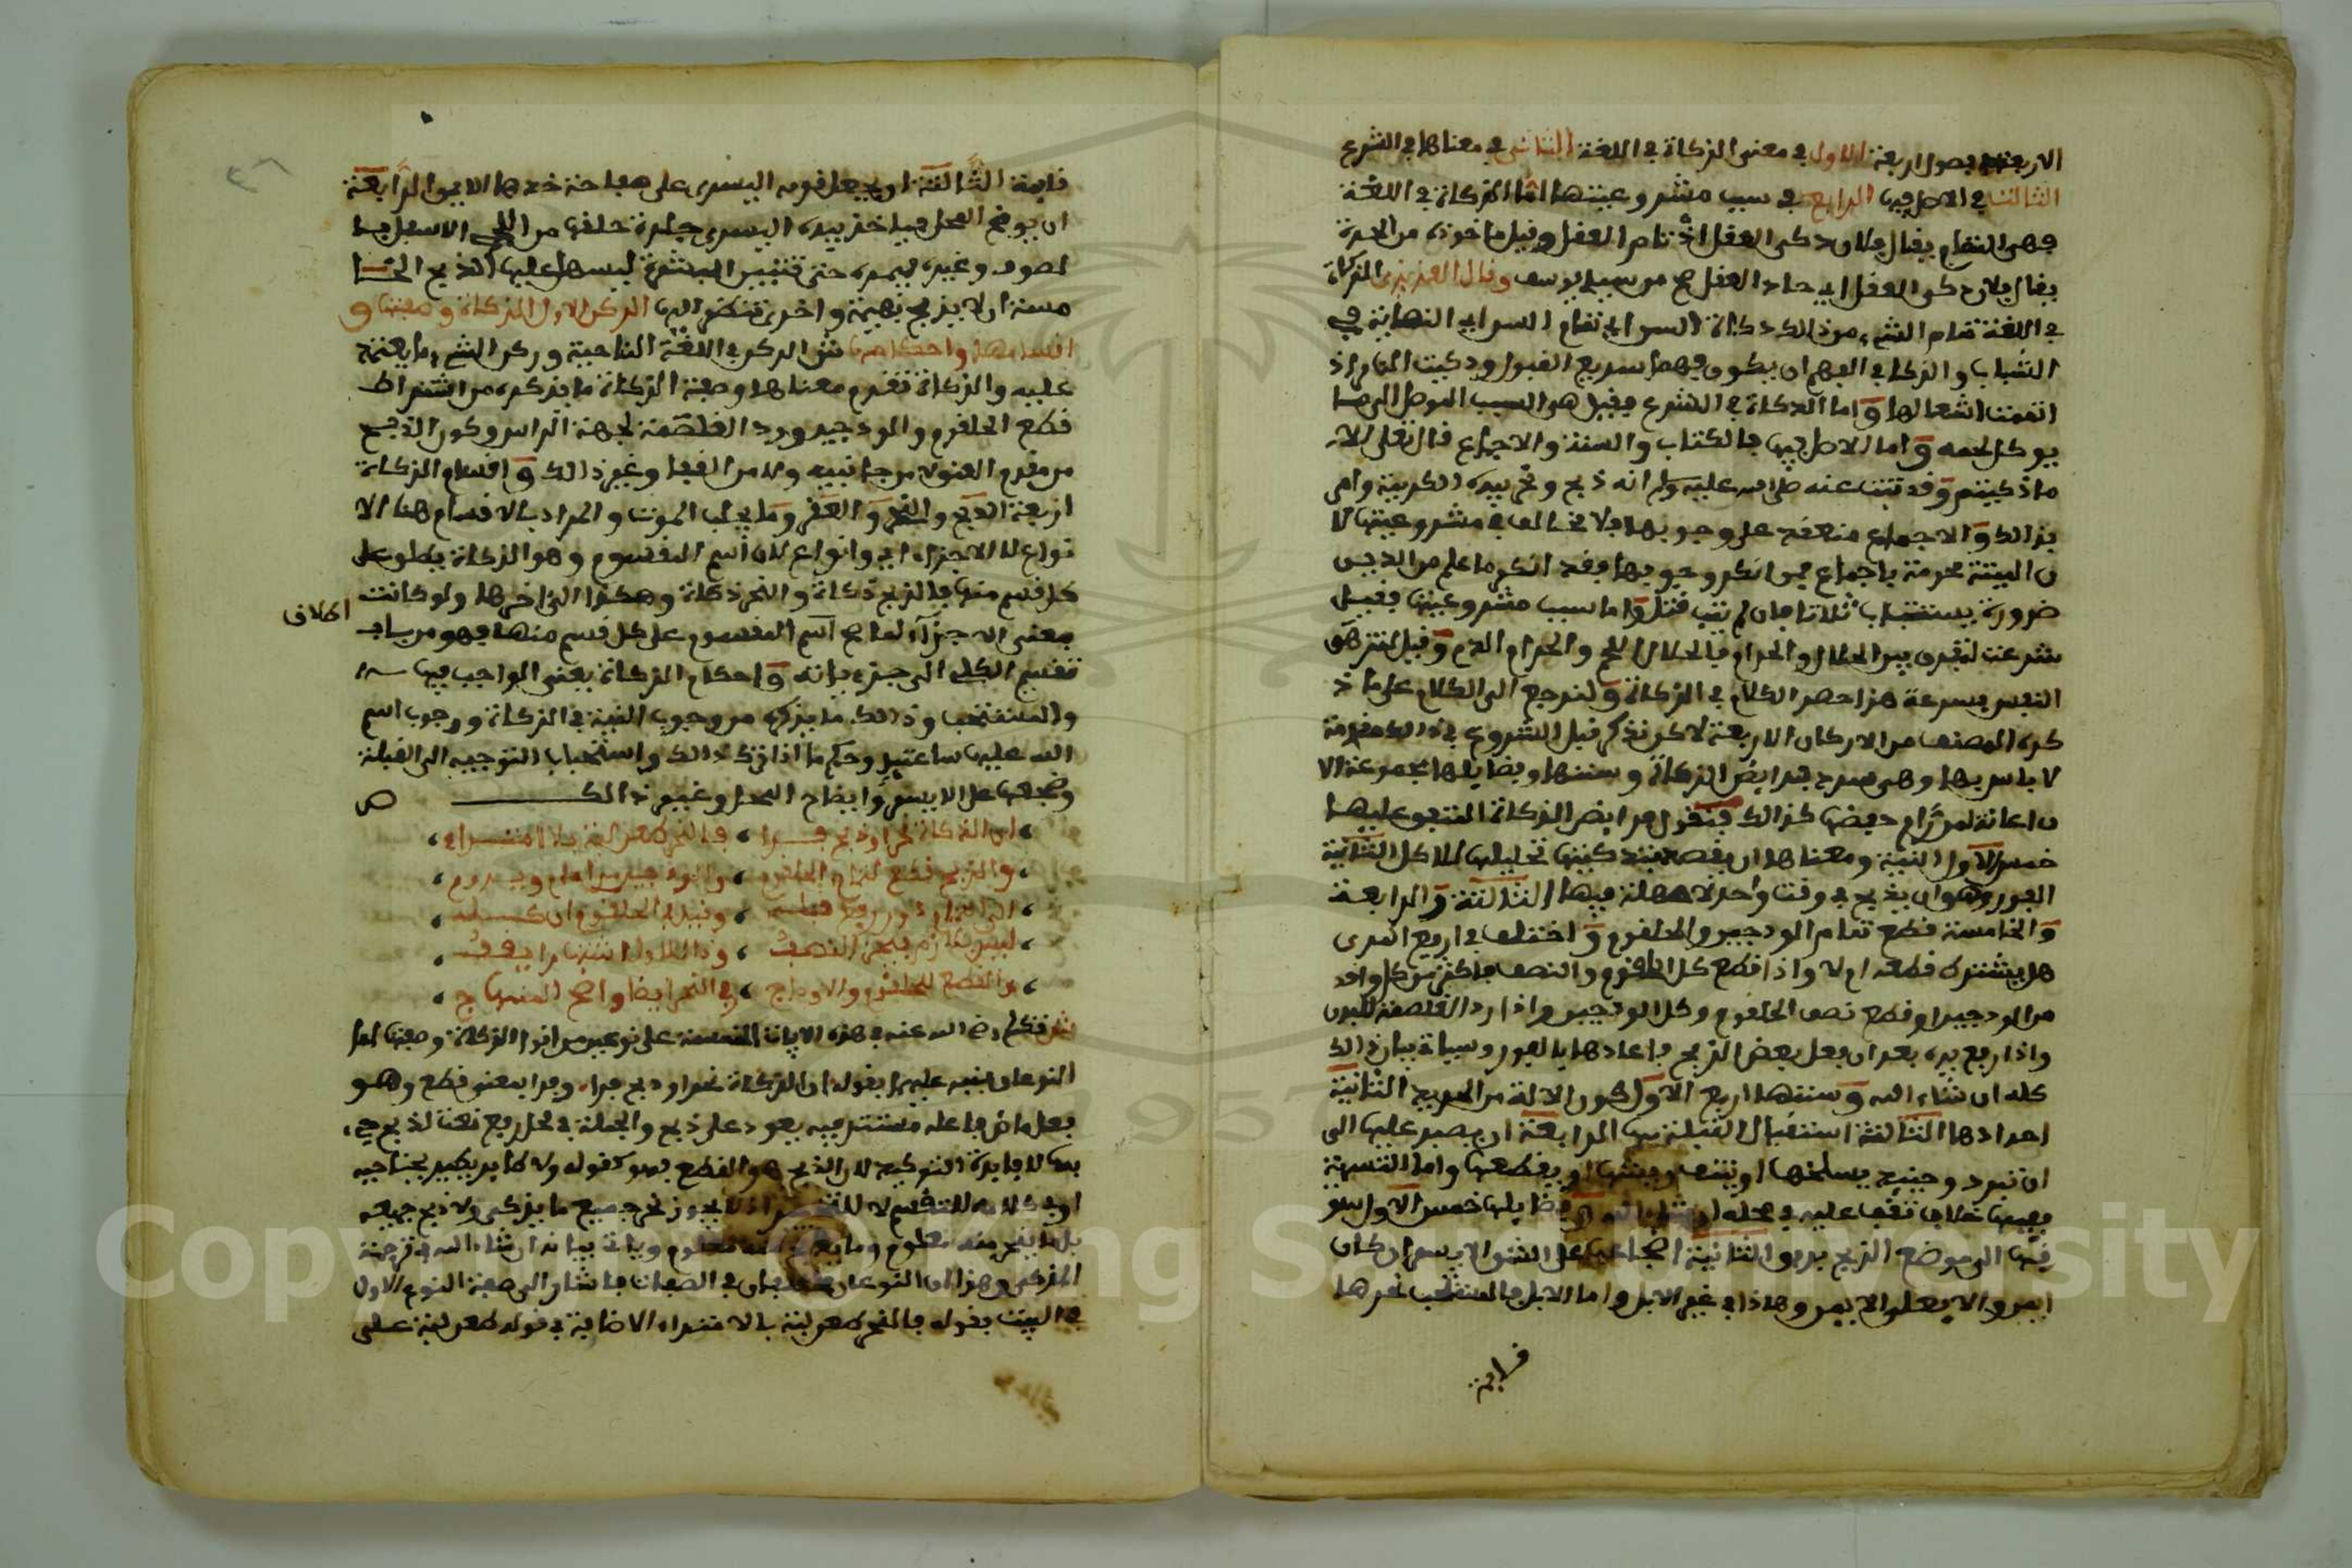 الاربعة فصول اربعة الاول في معنى الذكاة في اللغة الثاني في معناها في الشرع
الثالث في الاصل فيها الرابع في سبب مشروعيتها اما الذكاة في اللغة
فهي التمام يقال فلان ذكي العقل اذ تام العقل وقيل ماخوذة من الحدة
يقال فلان ذكي العقل اي حاد العقل صح من سيد يوسف وقال العزيزي الذكاة
في اللغة تمام الشيء من ذالك ذكاة السن اي تمام السن اي النهاية في
الشباب والذكا في الفهم ان يكون فهما سريع القبول وذكيت النار اذ
اتممت اشعالها واما الذكاة في الشرع فقيل هو السبب الموصل الى ما
يوكل لحمه واما الاصل فيها فالكتاب والسنة والاجماع قال تعلى الا
ما ذكيتم وقد ثبت عنه صلى الله عليه وسلم انه ذبح ونحر بيده الكريمة وامر
بذالك والاجماع منعقد على وجوبها فلا مخالف في مشروعيتها لا
ن الميتة محرمة باجماع فمن انكر وجوبها فقد انكر ما علم من الدين
ضرورة يستتاب ثلاثا فان لم يتب قتل واما سبب مشروعيتها فقيل
شرعت لتفرق بين الحلال والحرام فالحلال اللحم والحرام الدم وقيل لتزهق
النفس بسرعة هذا حصر الكلام في الذكاة ولنرجع الى الكلام على ما ذ
كره المصنف من الاركان الاربعة لاكن نذكر قبل الشروع في ذالك مقدمة
لا باس بها وهي سرد فرايض الذكاة وسننها وفضايلها مجموعة لا
ن اعانة لمن رام حفضها كذالك فنقول فرايض الذكاة المتفق عليها
خمس الاول النية ومعناها ان يقصد بتذكيتها تحليلها للاكل الثانية
الفور وهو ان يذبح في وقت واحد لا مهلة فيها الثالثة والرابعة
والخامسة قطع تمام الودجين والحلقوم واختلف في اربع المرى
هل يشترط قطعه ام لا واذا قطع كل الحلقوم والنصف فاكثر من كل واحد
من الودجين او قطع نصف الحلقوم وكل الودجين واذا رد الغلصمة للبدن
واذا رفع يده بعد ان فعل بعض الذبح فاعادها بالفور وسياتي بيان ذالك
كله ان شاء الله وسننها اربع الاول كون الالة من الحديد الثانية
احدادها الثالثة استقبال القبلة بها الرابعة ان يصبر عليها الى
ان تبرد وحينئذ يسلخها او ينتف ريشها او يقطعها واما التسمية
ففيها خلاف تقف عليه في محله ان شاء الله وفضايلها خمس الاول سو
قها الى موضع الذبح برفق الثانية اضجاعها على الشق الايسر ان كان
ايمن والا فعلى الايمن وهاذا في غير الابل واما الابل فالمستحب نحرها
قايمة
قايمة الثالثة ان يجعل قدمه اليسرى على صفاحة خدها الايمن الرابعة
ان يوضح المحل فياخذ بيده اليسرى جلدة حلقها من اللحي الاسفل بما
لصوف وغيره بيده حتى تتبين البشرة ليسهل عليه الذبح الخا
مسة ان لا يذبح بهيمة واخرى تنظر اليها الركن الاول الذكاة وصفتها و
اقسامها واحكامها ش الركن في اللغة الناحية وركن الشيء ما يعتمد
عليه والذكاة تقدم معناها وصفة الذكاة ما يذكره من اشتراط
قطع الحلقوم والودجين ورد الغلصمة لجهة الراس وكون الذبح
من مقدم العنق لا من جانبيه ولا من القفا وغير ذالك واقسام الذكاة
اربعة الذبح والنحر والعقر وما يعجل الموت والمراد بالاقسام هنا الا
نواع لا الاجزاء اي وانواع لان اسم المقسوم وهو الذكاة يطلق على
كل قسم منها فالذبح ذكاة والنحر ذكاة وهكذا الى اخرها ولو كانت
بمعنى الاجزاء لما صح اسم المقسوم على كل قسم منها فهو من باب
اطلاق
تقسيم الكلي الى جزءياته واحكام الذكاة يعني الواجب فيها
والمستحب وذالك ما يذكره من وجوب النية في الذكاة ووجوب اسم
الله عليها ساعتئذ وحكم ما اذا ترك ذالك واستحباب التوجيه الى القبلة
وضجعها على الايسر وايضاح المحل وغير ذالك ص
ان الذكاة نحر او ذبح فرا ، فالنحر طعن لبة بلا امتراء
والذبح قطع لتمام الحلقوم ، والودجين من امام ويدوم
الى تمام دون رفع قبله ، وقيل في الحلقوم ان كمله
ليس بلازم فيجزئ النصف ، وذا للاول اشتهارا يقف
والقطع للحلقوم والاوداج ، في النحر ايضا واضح المنهاج
ش تكلم رضي الله عنه في هذه الابيات الخمسة على نوعين من انواع الذكاة وصفتها اما
النوعان فنبه عليهما بقوله ان الذكاة نحر او ذبح فراء وفرا بمعنى قطع وهو
فعل ماض فاعله مستتر فيه يعود على ذبح والجملة في محل رفع نعت لذبح جيء
بها لافادة التوكيد لان الذبح هو القطع فهو كقوله ولا طاير يطير بجناحيه
او في كلامه للتقسيم لا للتخيير اذ لا يجوز نحر جميع ما يذكى ولا ذبح جميعه
بل ما ينحر منه معلوم وما يذبح منه معلوم وياتي بيانه ان شاء الله في ترجمة
المذكى وهذان النوعان مختلفان في الصفات فاشار الى صفة النوع الاول
في البيت بقوله فالنحر طعن لبة بلا امتراء الاضافة في قوله طعن لبة على